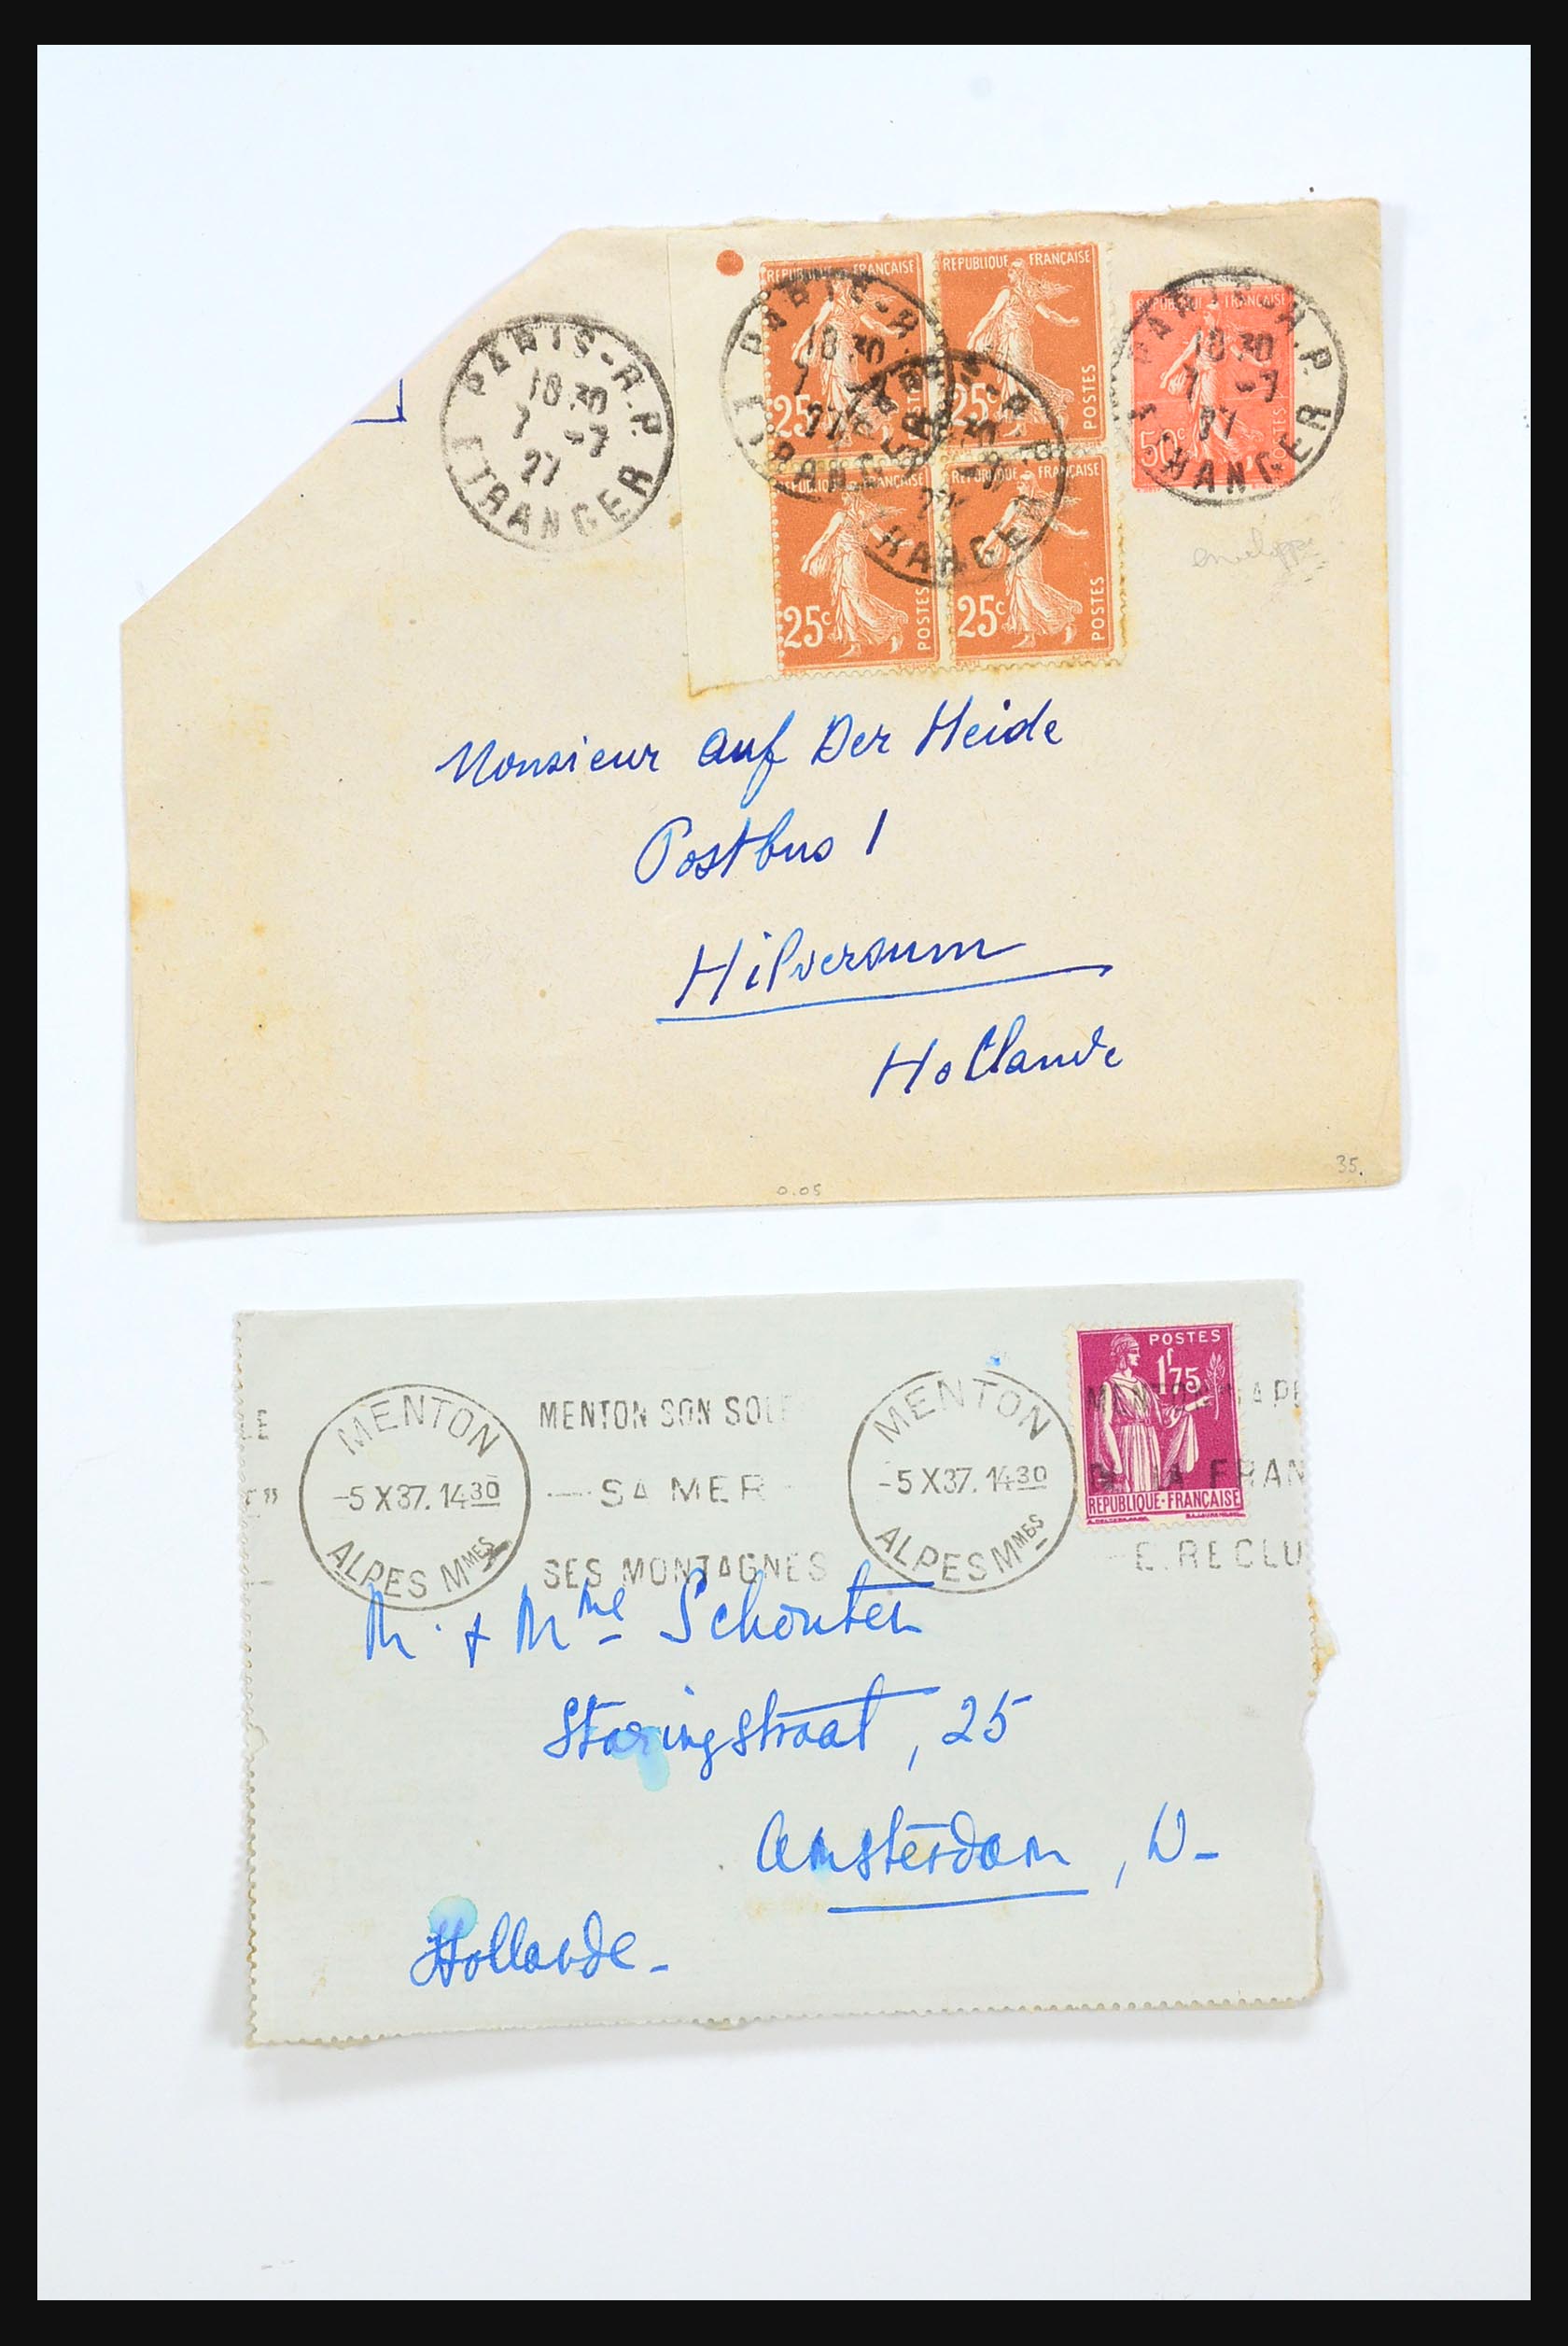 PARIS-R.P.
18 30
7 -7
27
ETRANGER
REPUBLIQUE FRANÇAISE
25c POSTES
REPUBLIQUE FRANÇAISE
25c POSTES
REPUBLIQUE FRANÇAISE
25c POSTES
REPUBLIQUE FRANÇAISE
25c POSTES
REPUBLIQUE FRANÇAISE
50c POSTES
PARIS-R.P.
18 30
7 -7
27
ETRANGER
enveloppe
Monsieur auf Der Heide
Postbus 1
Hilversum
Hollande
35.
0.05
MENTON
-5 X 37. 14 30
ALPES Mmes
MENTON SON SOLE
SA MER
SES MONTAGNES
MENTON
-5 X 37. 14 30
ALPES Mmes
POSTES
1f75
REPUBLIQUE-FRANÇAISE
DE LA FRAN
E. RECLU
M. & Mme Schouten
Staringstraat, 25
Amsterdam, W-
Hollande-